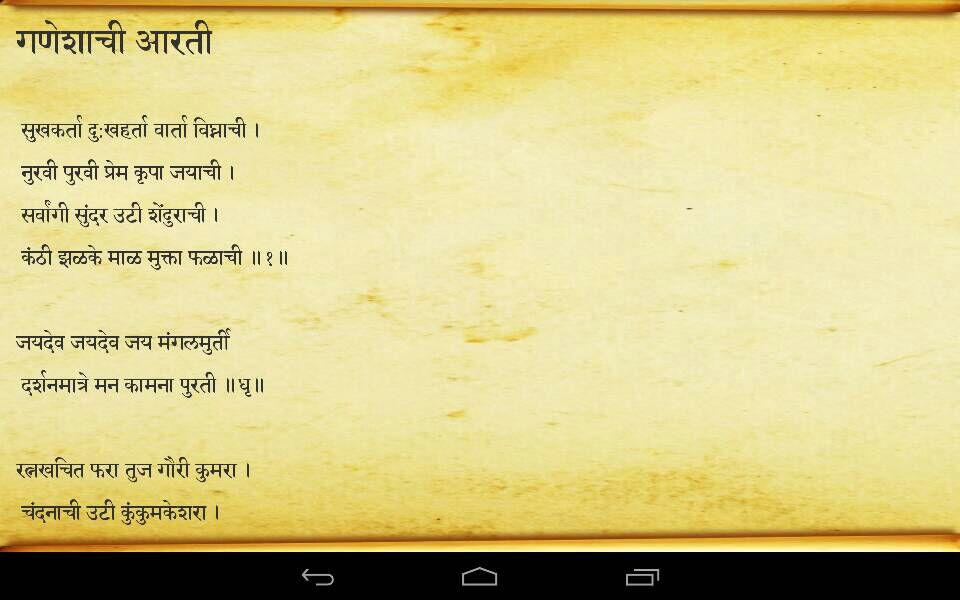 गणेशाची आरती
सुखकर्ता दुःखहर्ता वार्ता विघ्नाची ।
नुरवी पुरवी प्रेम कृपा जयाची ।
सर्वांगी सुंदर उटी शेंदुराची ।
कंठी झळके माळ मुक्ता फळाची ॥१॥
जयदेव जयदेव जय मंगलमुर्ती
दर्शनमात्रे मन कामना पुरती ॥धृ॥
रत्नखचित फरा तुज गौरी कुमरा ।
चंदनाची उटी कुंकुमकेशरा ।